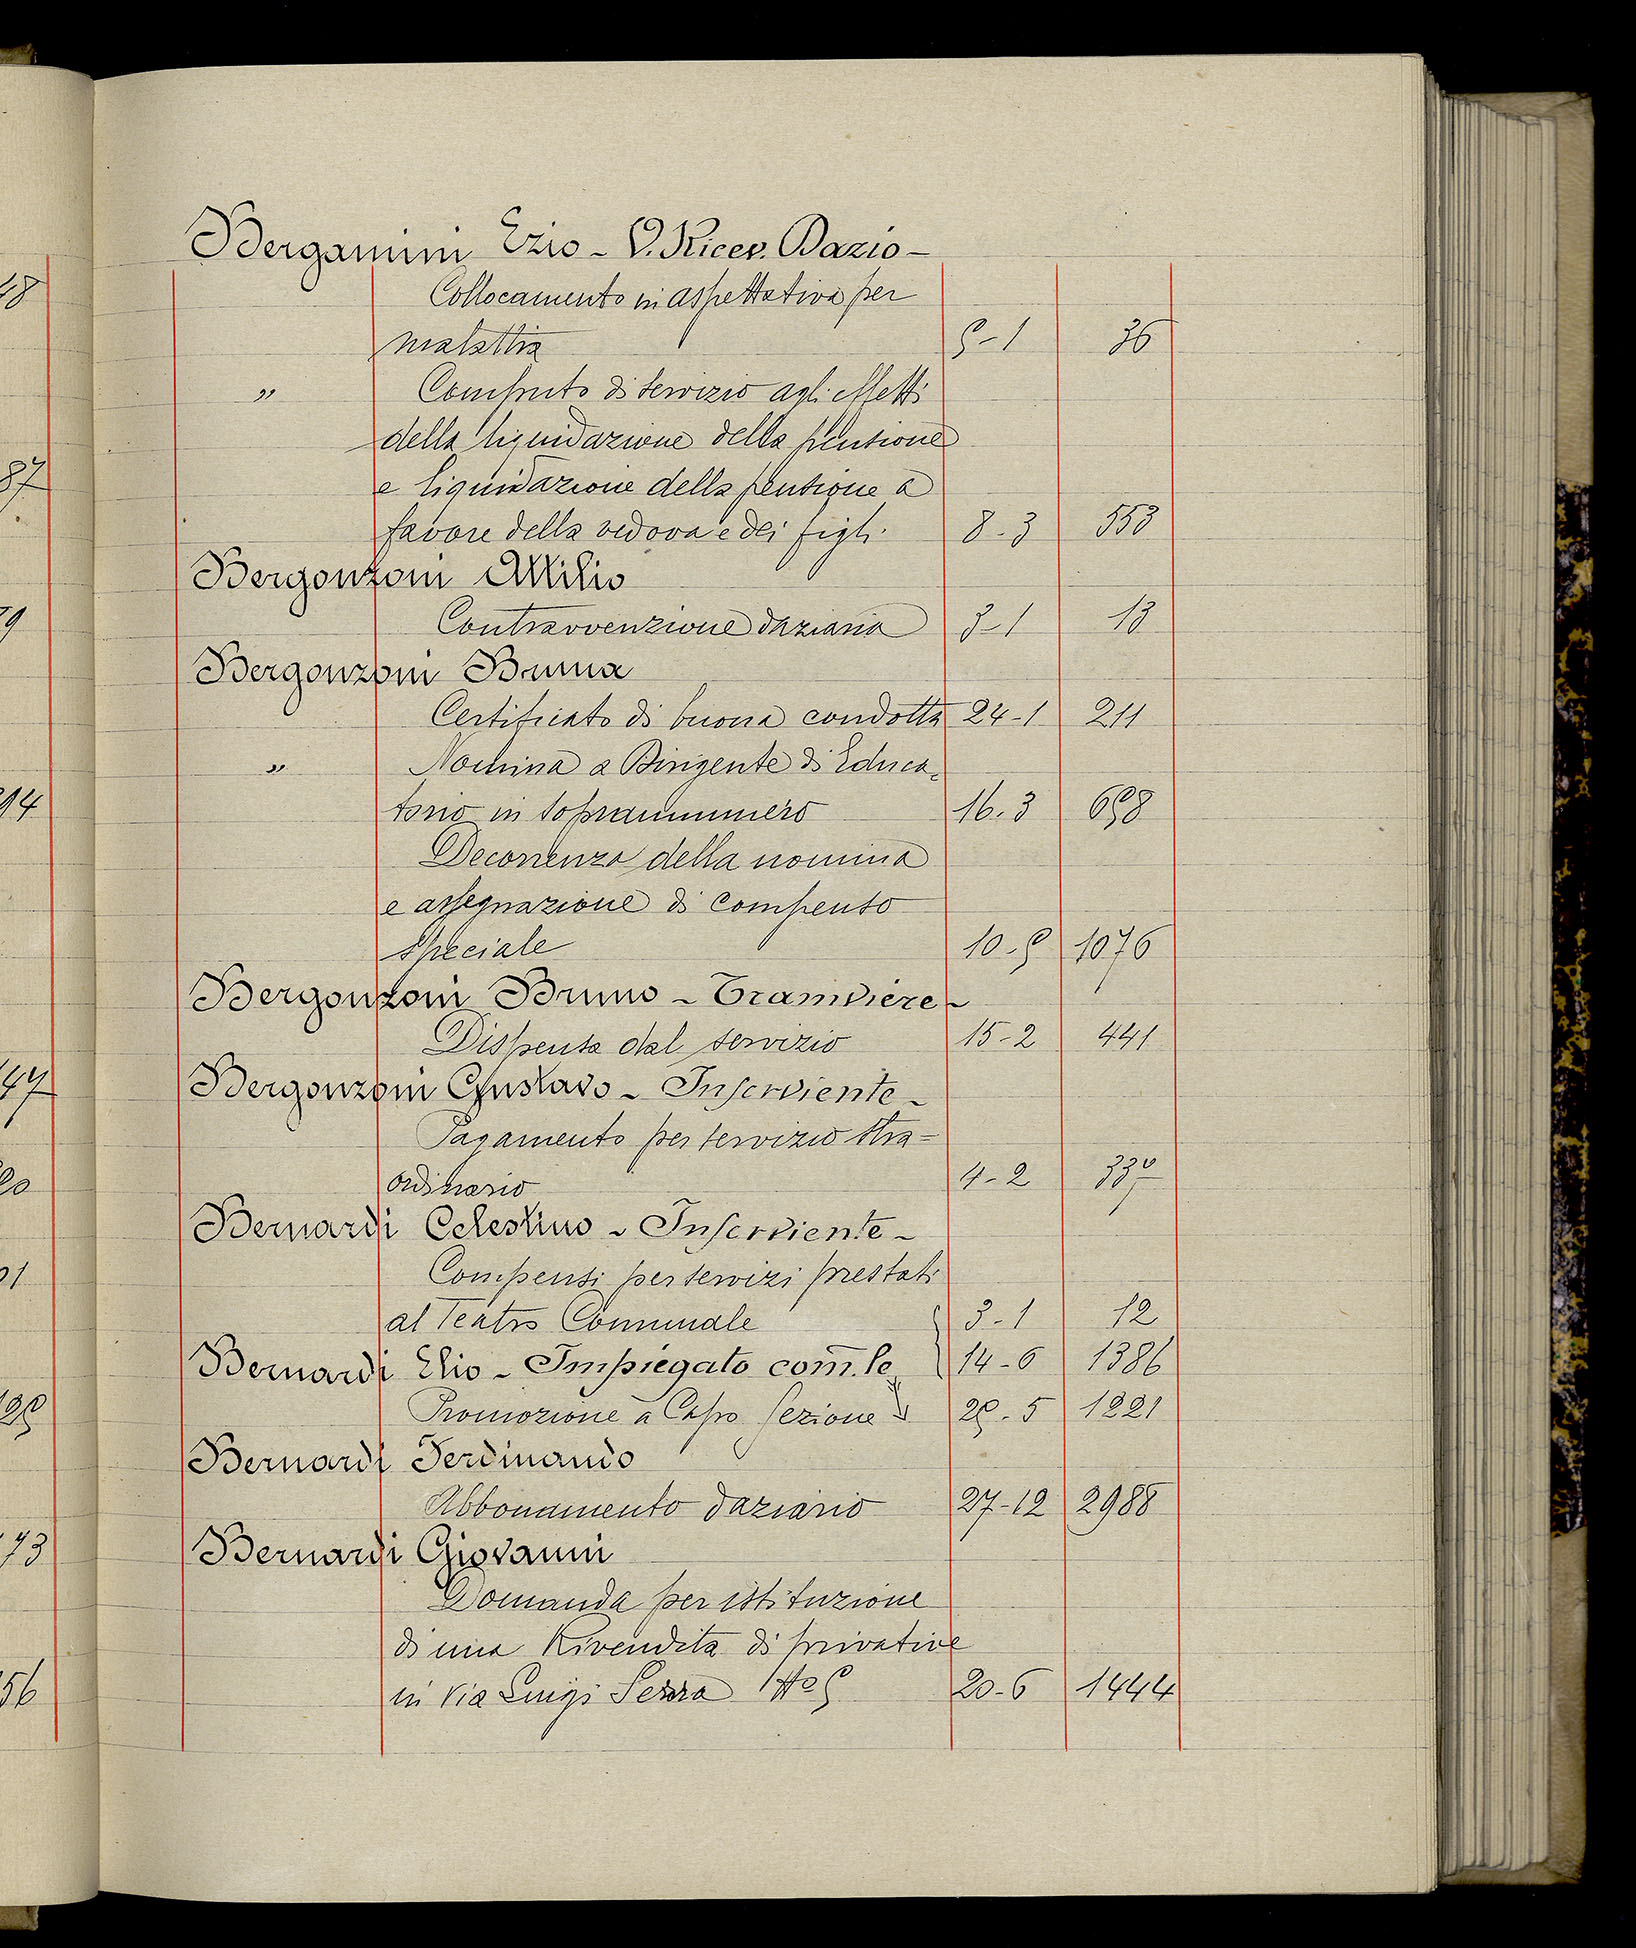 48
87
79
94
47
20
01
73
56
Bergamini Ezio - V. Ricev. Dazio -
Collocamento in aspettativa per
malattia 5-1 36
" Computo di servizio agli effetti
della liquidazione della pensione
e liquidazione della pensione a
favore della vedova e dei figli. 8-3 553
Bergonzoni Attilio
Contravvenzione daziaria 3-1 13
Bergonzoni Bruna
Certificato di buona condotta 24-1 211
" Nomina a Dirigente di Educa-
torio in soprannumero 16.3 658
Decorrenza della nomina
e assegnazione di compenso
speciale 10-5 1076
Bergonzoni Bruno - Tramviere -
Dispensa dal servizio 15-2 441
Bergonzoni Gustavo - Inserviente -
Pagamento per servizio stra=
ordinario 4-2
Bernardi Celestino - Inserviente -
Compensi per servizi prestati
al Teatro Comunale 3-1 12
Bernardi Elio - Impiegato com.le 14-6 1386
Promozione a Capo Sezione 25.5 1221
Bernardi Ferdinando
Abbonamento daziario 27-12 2988
Bernardi Giovanni
Domanda per istituzione
di una Rivendita di privative
in Via Luigi Serra 20-6 1444